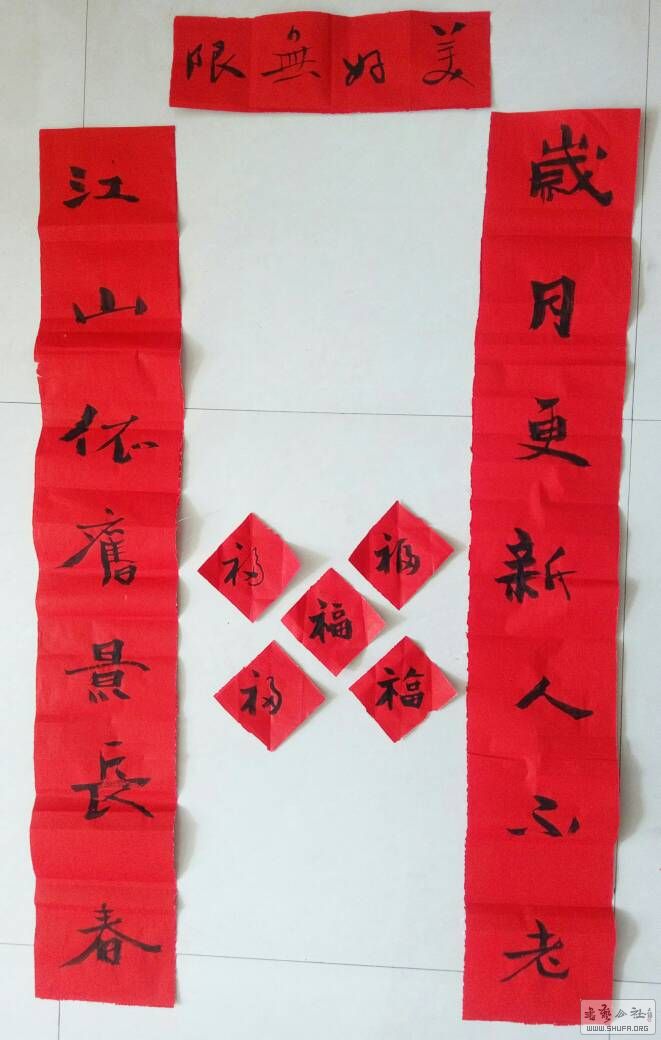 美好無限
歲月更新人不老
江山依舊景長春
福
福
福
福
福
書藝公社
WWW.SHUFA.ORG